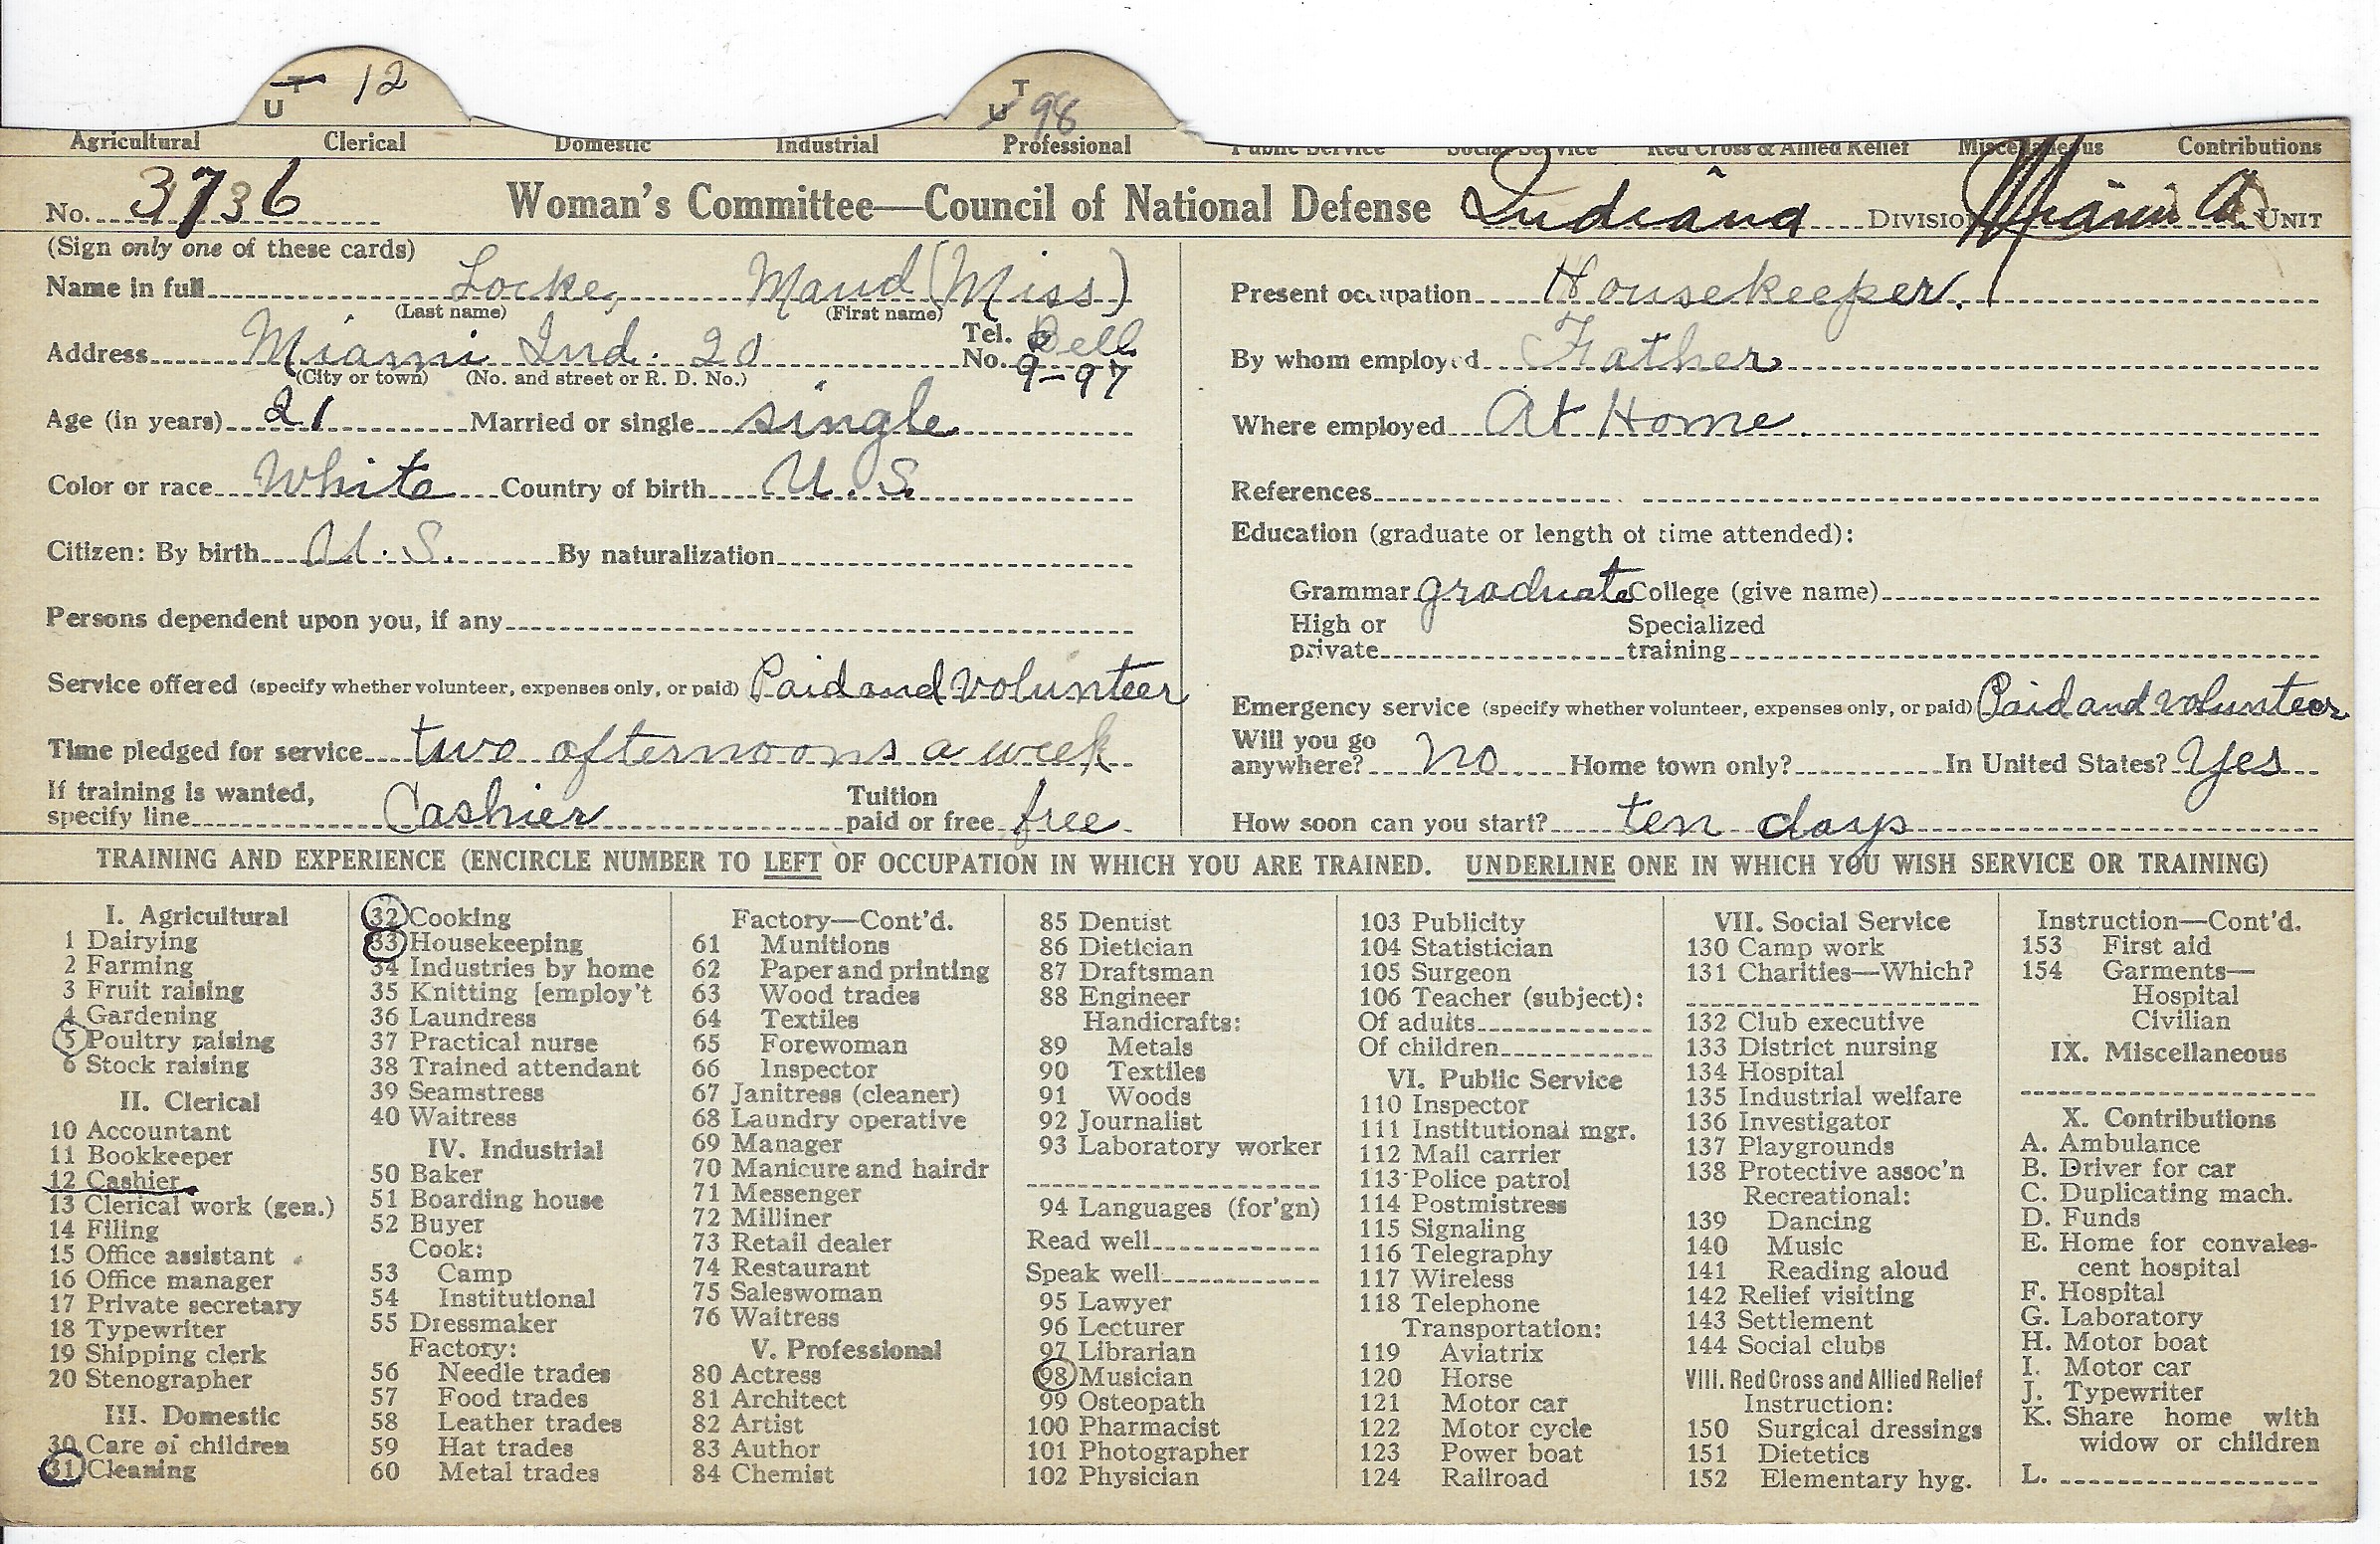 T U 12 T U 98
Agricultural Clerical Domestic Industrial Professional Public Service Social Service Red Cross & Allied Relief Miscellaneous Contributions
No. 3736 Woman's Committee—Council of National Defense Indiana DIVISION Miami Co UNIT
(Sign only one of these cards)
Name in full Locke, Maud (Miss)
(Last name) (First name)
Address Miami Ind. 20 Tel. No. Bell 9-97
(City or town) (No. and street or R. D. No.)
Age (in years) 21 Married or single single
Color or race White Country of birth U. S.
Citizen: By birth U. S. By naturalization
Persons dependent upon you, if any
Service offered (specify whether volunteer, expenses only, or paid) Paid and volunteer
Time pledged for service two afternoons a week
If training is wanted, specify line Cashier Tuition paid or free free
Present occupation Housekeeper.
By whom employed Father
Where employed At Home
References
Education (graduate or length of time attended):
Grammar graduate College (give name)
High or private Specialized training
Emergency service (specify whether volunteer, expenses only, or paid) Paid and volunteer
Will you go anywhere? no Home town only? In United States? Yes
How soon can you start? ten days
TRAINING AND EXPERIENCE (ENCIRCLE NUMBER TO LEFT OF OCCUPATION IN WHICH YOU ARE TRAINED. UNDERLINE ONE IN WHICH YOU WISH SERVICE OR TRAINING)
I. Agricultural
1 Dairying
2 Farming
3 Fruit raising
4 Gardening
5 Poultry raising
6 Stock raising
II. Clerical
10 Accountant
11 Bookkeeper
12 Cashier
13 Clerical work (gen.)
14 Filing
15 Office assistant
16 Office manager
17 Private secretary
18 Typewriter
19 Shipping clerk
20 Stenographer
III. Domestic
30 Care of children
31 Cleaning
32 Cooking
33 Housekeeping
34 Industries by home
35 Knitting [employ't
36 Laundress
37 Practical nurse
38 Trained attendant
39 Seamstress
40 Waitress
IV. Industrial
50 Baker
51 Boarding house
52 Buyer
Cook:
53 Camp
54 Institutional
55 Dressmaker
Factory:
56 Needle trades
57 Food trades
58 Leather trades
59 Hat trades
60 Metal trades
Factory—Cont'd.
61 Munitions
62 Paper and printing
63 Wood trades
64 Textiles
65 Forewoman
66 Inspector
67 Janitress (cleaner)
68 Laundry operative
69 Manager
70 Manicure and hairdr
71 Messenger
72 Milliner
73 Retail dealer
74 Restaurant
75 Saleswoman
76 Waitress
V. Professional
80 Actress
81 Architect
82 Artist
83 Author
84 Chemist
85 Dentist
86 Dietician
87 Draftsman
88 Engineer
Handicrafts:
89 Metals
90 Textiles
91 Woods
92 Journalist
93 Laboratory worker
94 Languages (for'gn)
Read well
Speak well
95 Lawyer
96 Lecturer
97 Librarian
98 Musician
99 Osteopath
100 Pharmacist
101 Photographer
102 Physician
103 Publicity
104 Statistician
105 Surgeon
106 Teacher (subject):
Of adults
Of children
VI. Public Service
110 Inspector
111 Institutional mgr.
112 Mail carrier
113 Police patrol
114 Postmistress
115 Signaling
116 Telegraphy
117 Wireless
118 Telephone
Transportation:
119 Aviatrix
120 Horse
121 Motor car
122 Motor cycle
123 Power boat
124 Railroad
VII. Social Service
130 Camp work
131 Charities—Which?
132 Club executive
133 District nursing
134 Hospital
135 Industrial welfare
136 Investigator
137 Playgrounds
138 Protective assoc'n
Recreational:
139 Dancing
140 Music
141 Reading aloud
142 Relief visiting
143 Settlement
144 Social clubs
VIII. Red Cross and Allied Relief
Instruction:
150 Surgical dressings
151 Dietetics
152 Elementary hyg.
Instruction—Cont'd.
153 First aid
154 Garments—
Hospital
Civilian
IX. Miscellaneous
X. Contributions
A. Ambulance
B. Driver for car
C. Duplicating mach.
D. Funds
E. Home for convales-
cent hospital
F. Hospital
G. Laboratory
H. Motor boat
I. Motor car
J. Typewriter
K. Share home with
widow or children
L.